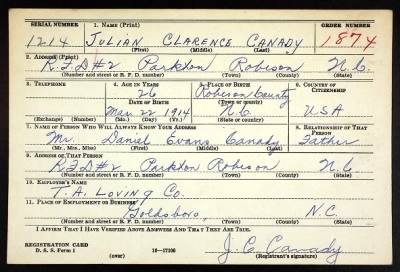 SERIAL NUMBER 1. NAME (Print) ORDER NUMBER
1214 JULIAN CLARENCE CANADY 1874
(First) (Middle) (Last)
2. ADDRESS (Print)
R.F.D#2 Parkton Robeson N.C.
(Number and street or R. F. D. number) (Town) (County) (State)
3. TELEPHONE 4. AGE IN YEARS 5. PLACE OF BIRTH 6. COUNTRY OF CITIZENSHIP
26 Robeson County
DATE OF BIRTH (Town or county)
Mar. 22 1914 N.C. USA
(Exchange) (Number) (Mo.) (Day) (Yr.) (State or country)
7. NAME OF PERSON WHO WILL ALWAYS KNOW YOUR ADDRESS 8. RELATIONSHIP OF THAT PERSON
Mr. Daniel Evans Canady Father
(Mr., Mrs., Miss) (First) (Middle) (Last)
9. ADDRESS OF THAT PERSON
RFD#2 Parkton Robeson N.C.
(Number and street or R. F. D. number) (Town) (County) (State)
10. EMPLOYER'S NAME
T. A. LOVING Co.
11. PLACE OF EMPLOYMENT OR BUSINESS
Goldsboro, N.C.
(Number and street or R. F. D. number) (Town) (County) (State)
I AFFIRM THAT I HAVE VERIFIED ABOVE ANSWERS AND THAT THEY ARE TRUE.
REGISTRATION CARD
D. S. S. Form 1 16—17105 J. C. Canady
(over) (Registrant's signature)